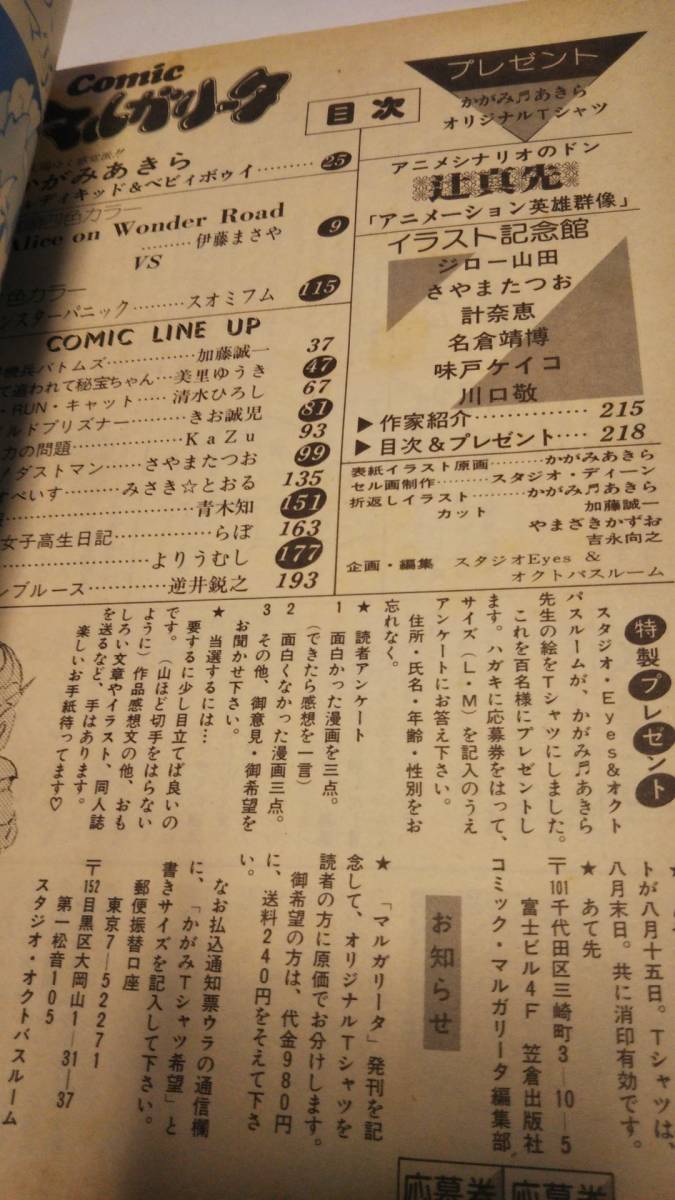 Comic
マルガリータ
目次
かがみあきら
ディキッド&ベビィボゥイ………25
色カラー
Alice on Wonder Road
………伊藤まさや 9
VS
色カラー
ンスターパニック………スオミフム 115
COMIC LINE UP
機兵バトムズ………加藤誠一 37
て追われて秘宝ちゃん…美里ゆうき 47
・RUN・キャット……清水ひろし 67
ルドプリズナー………きお誠児 81
力の問題………KaZu 93
ノダストマン……さやまたつお 99
すぺいす……みさき☆とおる 135
………青木知 151
女子高生日記………らぽ 163
………よりうむし 177
ンブルース………逆井鋭之 193
プレゼント
かがみ♬あきら
オリジナルTシャツ
アニメシナリオのドン
辻真先
「アニメーション英雄群像」
イラスト記念館
ジロー山田
さやまたつお
計奈恵
名倉靖博
味戸ケイコ
川口敬
▶作家紹介………215
▶目次&プレゼント……218
表紙イラスト原画………かがみあきら
セル画制作………スタジオ・ディーン
折返しイラスト………かがみ♬あきら
カット 加藤誠一
やまざきかずお
吉永向之
企画・編集 スタジオEyes &
オクトパスルーム
特製プレゼント
スタジオ・Eyes&オクト
パスルームが、かがみ♬あきら
先生の絵をTシャツにしました。
これを百名様にプレゼントし
ます。ハガキに応募券をはって、
サイズ(L・M)を記入のうえ
アンケートにお答え下さい。
住所・氏名・年齢・性別をお
忘れなく。
★ 読者アンケート
1 面白かった漫画を三点。
(できたら感想を一言)
2 面白くなかった漫画三点。
3 その他、御意見・御希望を
お聞かせ下さい。
★ 当選するには…
要するに少し目立てば良いの
です。(山ほど切手をはらない
ように)作品感想文の他、おも
しろい文章やイラスト、同人誌
を送るなど、手はあります。
楽しいお手紙待ってます♡
トが八月十五日。Tシャツは、
八月末日。共に消印有効です。
★ あて先
〒101千代田区三崎町3―10―5
富士ビル4F 笠倉出版社
コミック・マルガリータ編集部
お知らせ
★ 「マルガリータ」発刊を記
念して、オリジナルTシャツを
読者の方に原価でお分けします。
御希望の方は、代金980円
に、送料240円をそえて下さ
い。
なお払込通知票ウラの通信欄
に、「かがみTシャツ希望」と
書きサイズを記入して下さい。
郵便振替口座
東京7―52271
〒152目黒区大岡山1―31―37
第一松音105
スタジオ・オクトパスルーム
応募券
応募券